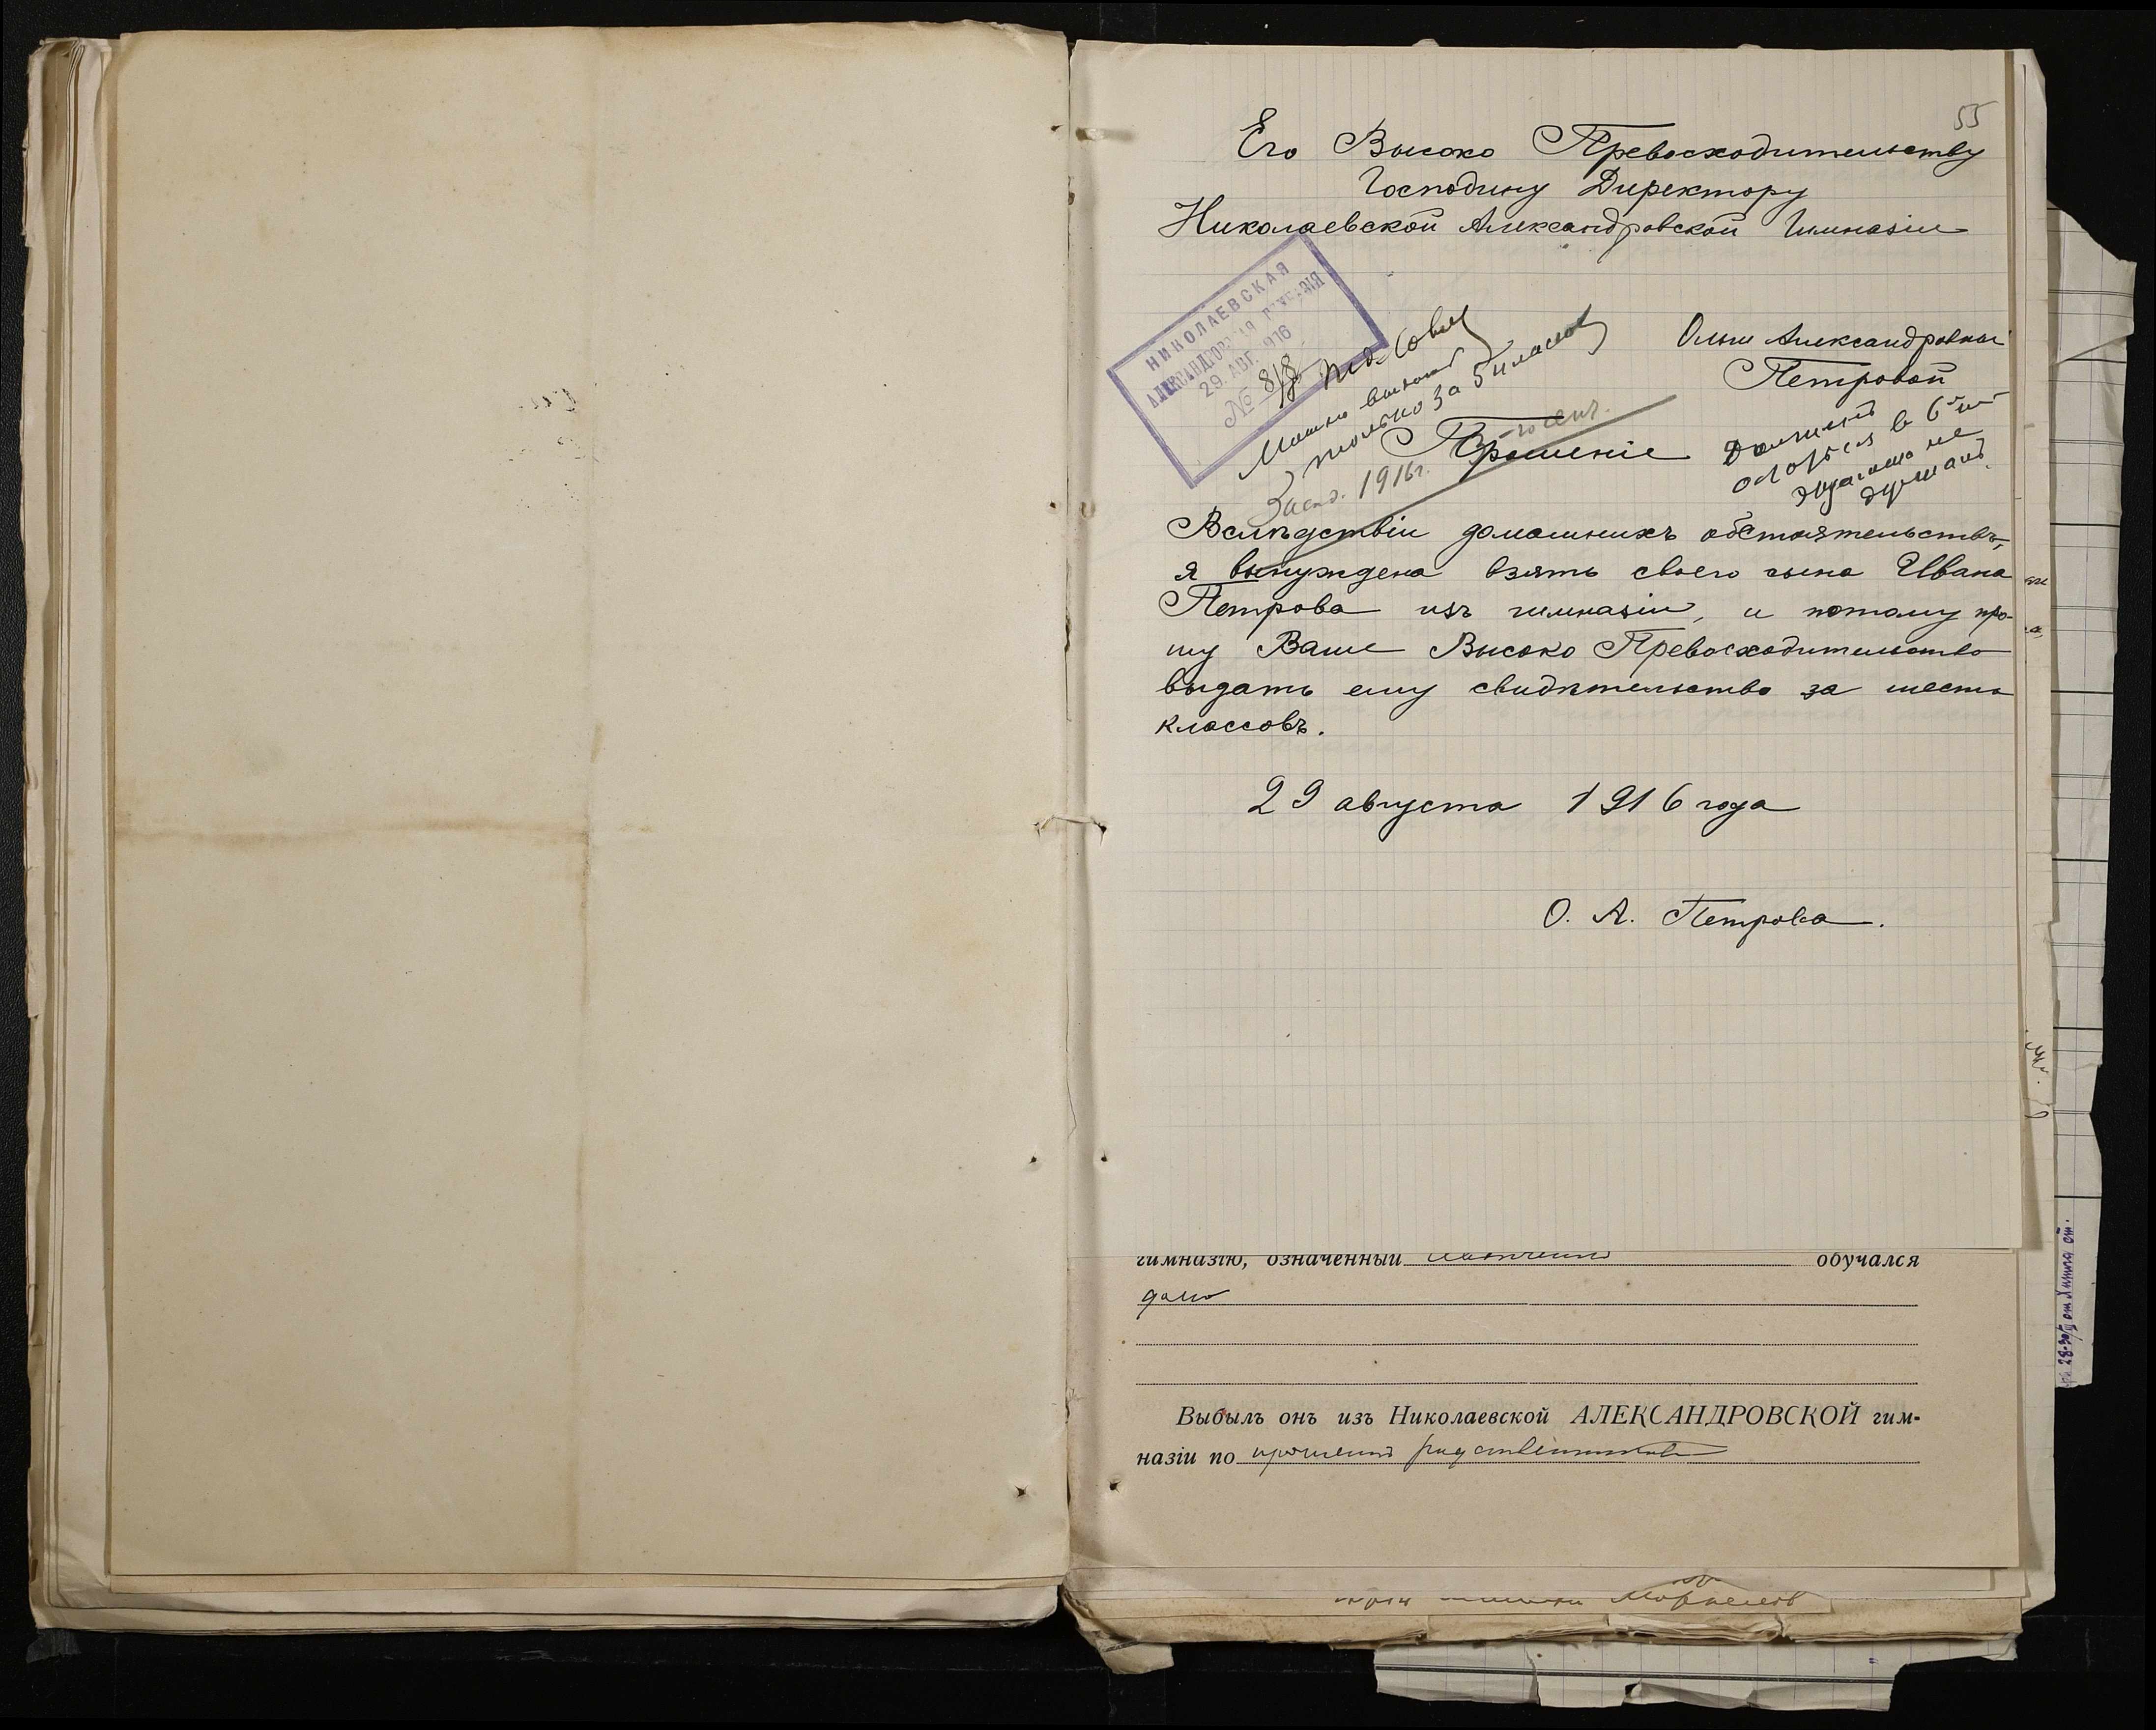 55
Его Высоко Превосходительству
Господину Директору
Николаевской Александровской Гимназіи
НИКОЛАЕВСКАЯ
АЛЕКСАНДРОВСКАЯ ГИМНАЗІЯ
29. АВГ. 1916
№ 818
Пед. Сов.
только за 5 классов
1916г.
Ольги Александровны
Петровой
Прошеніе
Вслѣдствіи домашнихъ обстоятельствъ,
я вынуждена взять своего сына Ивана
Петрова изъ гимназіи, и потому про-
шу Ваше Высоко Превосходительство
выдать ему свидѣтельство за шесть
классовъ.
29 августа 1916 года
О. А. Петрова.
гимназію, означенный обучался
дома
Выбылъ онъ изъ Николаевской АЛЕКСАНДРОВСКОЙ гим-
назіи по прошенію родственниковъ